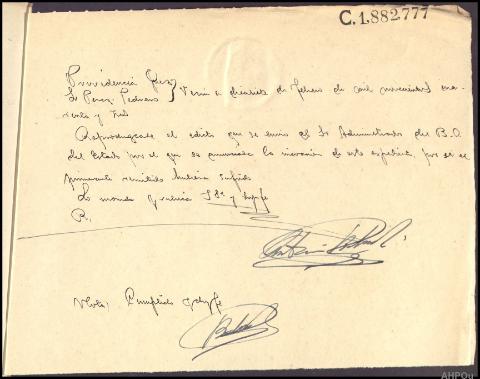 C.1.882.777
Providencia Juez
Sr Perez Pedrero } Verin a dieciseis de febrero de mil novecientos cua-
renta y tres
Reproduzcase el edicto que se envio al Sr Administrador del B.O.
del Estado por el que se anunciaba la incoación de este expediente, por si el
primeramente remitido hubiera sufrido
Lo mando y rubrica S Sª y doy fe
R.
Nota: Cumplido doy fe
AHPOu